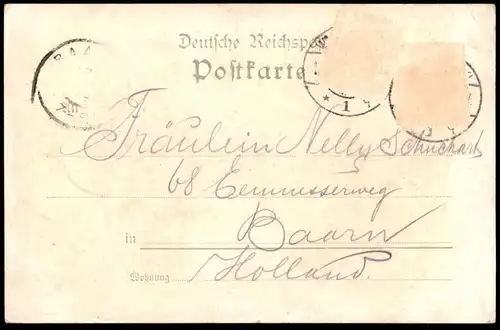 Deutsche Reichspost
Postkarte
BAA
Fräulein Nelly Schuchart
68 Eemnesserweg
in Baarn
Wohnung Holland.
* 1